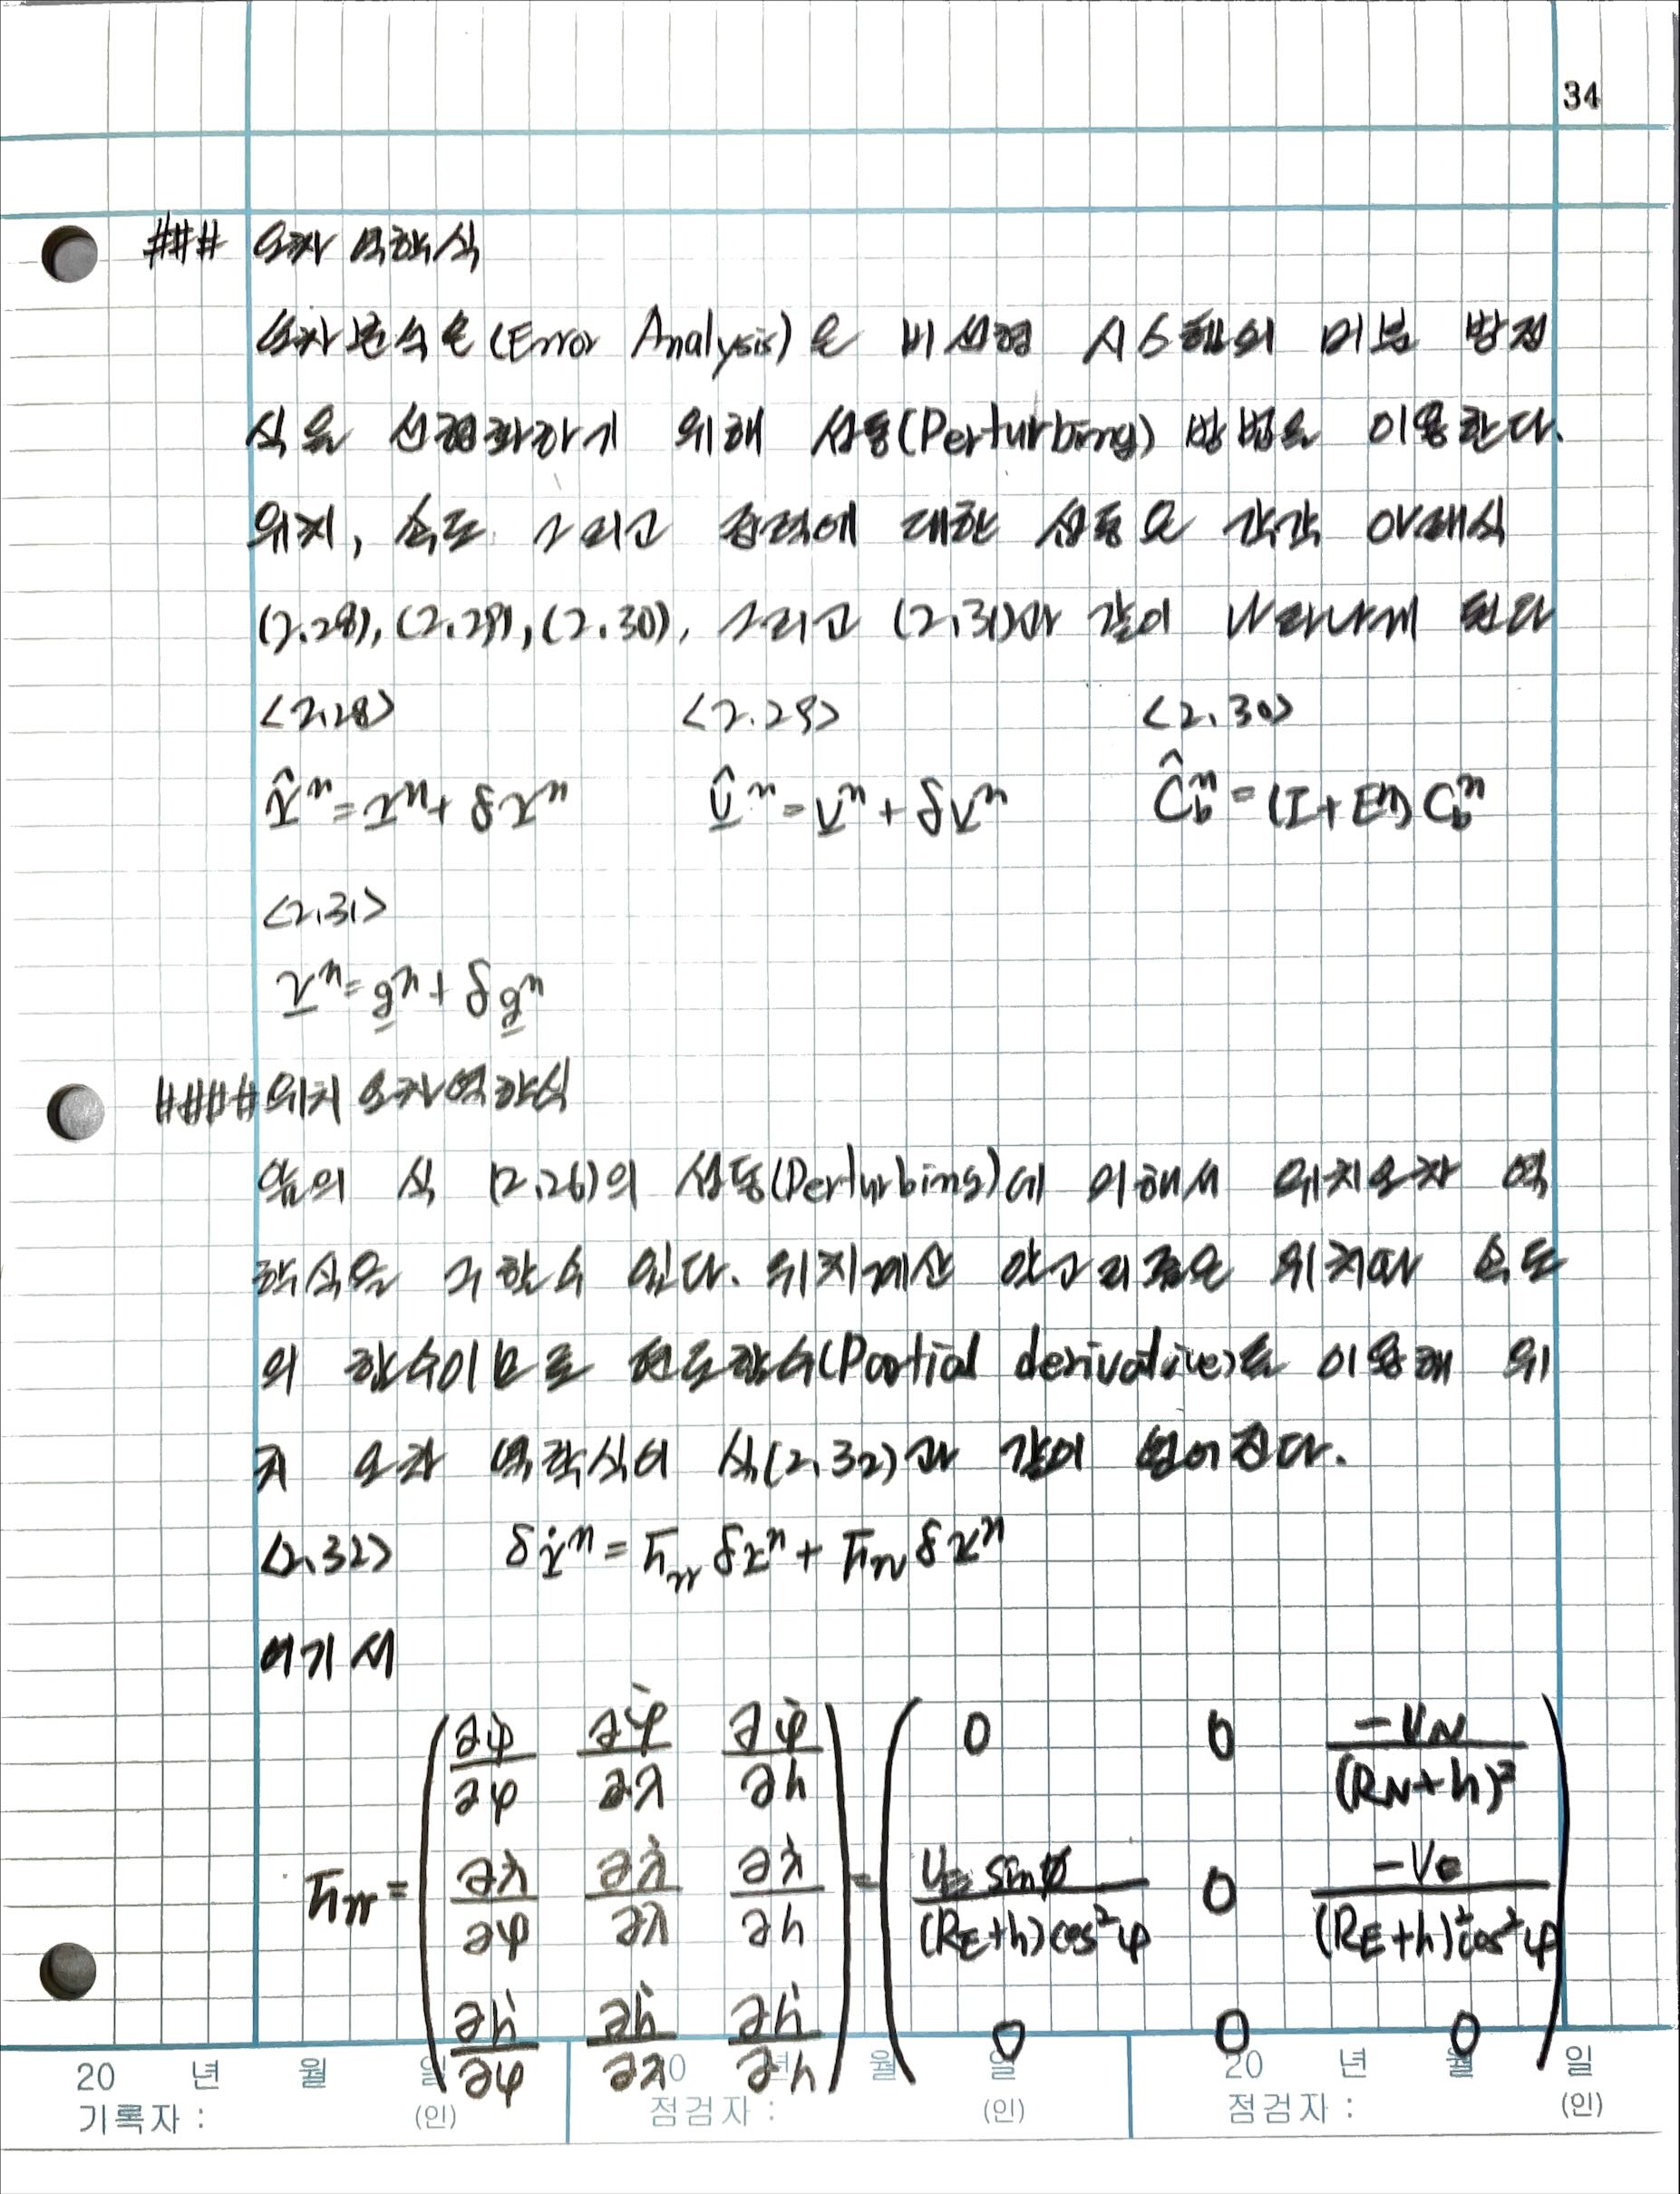 34
### 오차 역학식
오차분석은(Error Analysis)은 비선형 시스템의 미분 방정
식을 선형화하기 위해 섭동(Perturbing) 방법을 이용한다.
위치, 속도 그리고 중력에 대한 섭동은 각각 아래식
(2.28), (2.29), (2.30), 그리고 (2.31)과 같이 나타나게 된다
<2.28> <2.29> <2.30>
r̂ⁿ = rⁿ + δrⁿ v̂ⁿ = vⁿ + δvⁿ Ĉ_b^n = (I+Eⁿ) C_b^n
<2.31>
γⁿ = gⁿ + δgⁿ
#### 위치 오차역학식
앞의 식 (2.26)의 섭동(Perturbing)에 의해서 위치오차 역
학식을 구할 수 있다. 위치계산 알고리즘은 위치와 속도
의 함수이므로 편도함수(Partial derivative)를 이용해 위
치 오차 역학식이 식(2.32)과 같이 얻어진다.
<2.32> δṙⁿ = F_rr δrⁿ + F_rv δvⁿ
여기서
F_rr = ( ∂φ̇/∂φ ∂φ̇/∂λ ∂φ̇/∂h ) = ( 0 0 -V_N/(R_N+h)² )
( ∂λ̇/∂φ ∂λ̇/∂λ ∂λ̇/∂h ) ( V_E sinφ/(R_E+h)cos²φ 0 -V_e/(R_E+h)²cos²φ )
( ∂ḣ/∂φ ∂ḣ/∂λ ∂ḣ/∂h ) ( 0 0 0 )
20 년 월 일 20 년 월 일 20 년 월 일
기록자 : (인) 점검자 : (인) 점검자 : (인)